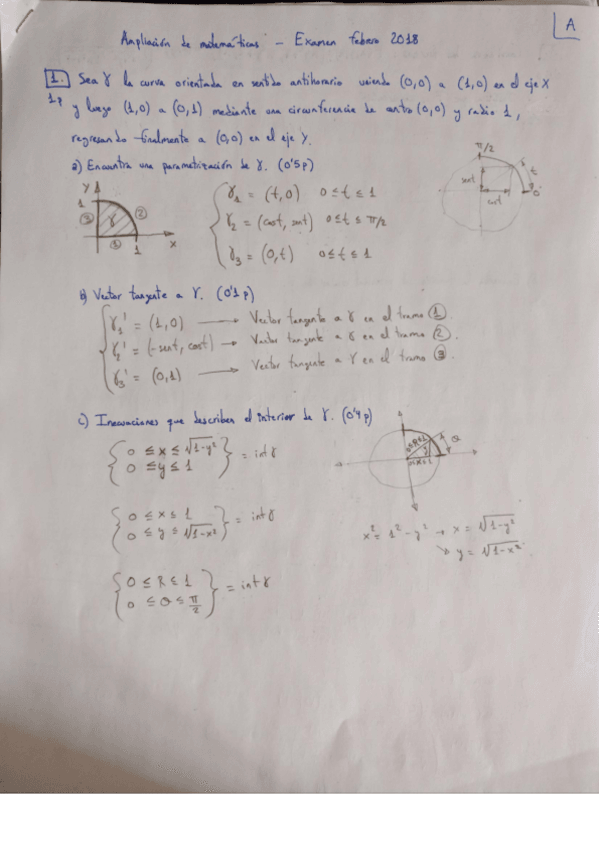 A
Ampliación de matemáticas - Examen febrero 2018
1. Sea γ la curva orientada en sentido antihorario uniendo (0,0) a (1,0) en el eje X
1p y luego (1,0) a (0,1) mediante una circunferencia de centro (0,0) y radio 1,
regresando finalmente a (0,0) en el eje Y.
a) Encuentra una parametrización de γ. (0'5p)
Y
1
③ γ ②
①
1 x
γ₁ = (t,0) 0≤t≤1
γ₂ = (cost, sent) 0≤t≤π/2
γ₃ = (0,t) 0≤t≤1
π/2
t
sent
cost
0
b) Vector tangente a γ. (0'1p)
γ₁' = (1,0) → Vector tangente a γ en el tramo ①.
γ₂' = (-sent, cost) → Vector tangente a γ en el tramo ②.
γ₃' = (0,1) → Vector tangente a γ en el tramo ③.
c) Inecuaciones que describen el interior de γ. (0'4p)
{0 ≤ x ≤ √1-y²
0 ≤ y ≤ 1} = int γ
{0 ≤ x ≤ 1
0 ≤ y ≤ √1-x²} = int γ
x² = 1² - y² → x = √1-y²
↘ y = √1-x²
{0 ≤ R ≤ 1
0 ≤ θ ≤ π/2} = int γ